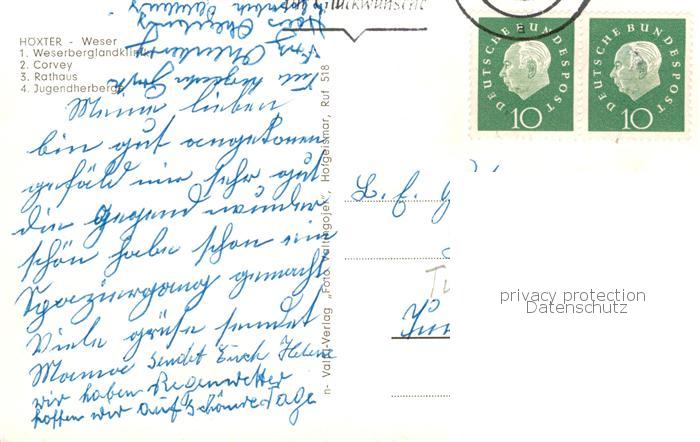 HÖXTER - Weser
1. Weserberglandklinik
2. Corvey
3. Rathaus
4. Jugendherberge
Glückwünsche
DEUTSCHE BUNDESPOST
10
DEUTSCHE BUNDESPOST
10
Meine lieben
bin gut angekomen
gefäld mir sehr gut
die gegend wunder
schön habe schon ein
Spaziergang gemacht
Viele grüße sendet
Mama sendet Euch Helene
wir haben Regenwetter
hoffen wir auf schönere Tage
n- Valtg-Verlag „Foto Valtingojek", Hofgeismar, Ruf 518
privacy protection
Datenschutz